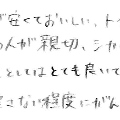 安くておいしい、ト
の人が親切、シャ
としてはとても良いで
さない程度にがん